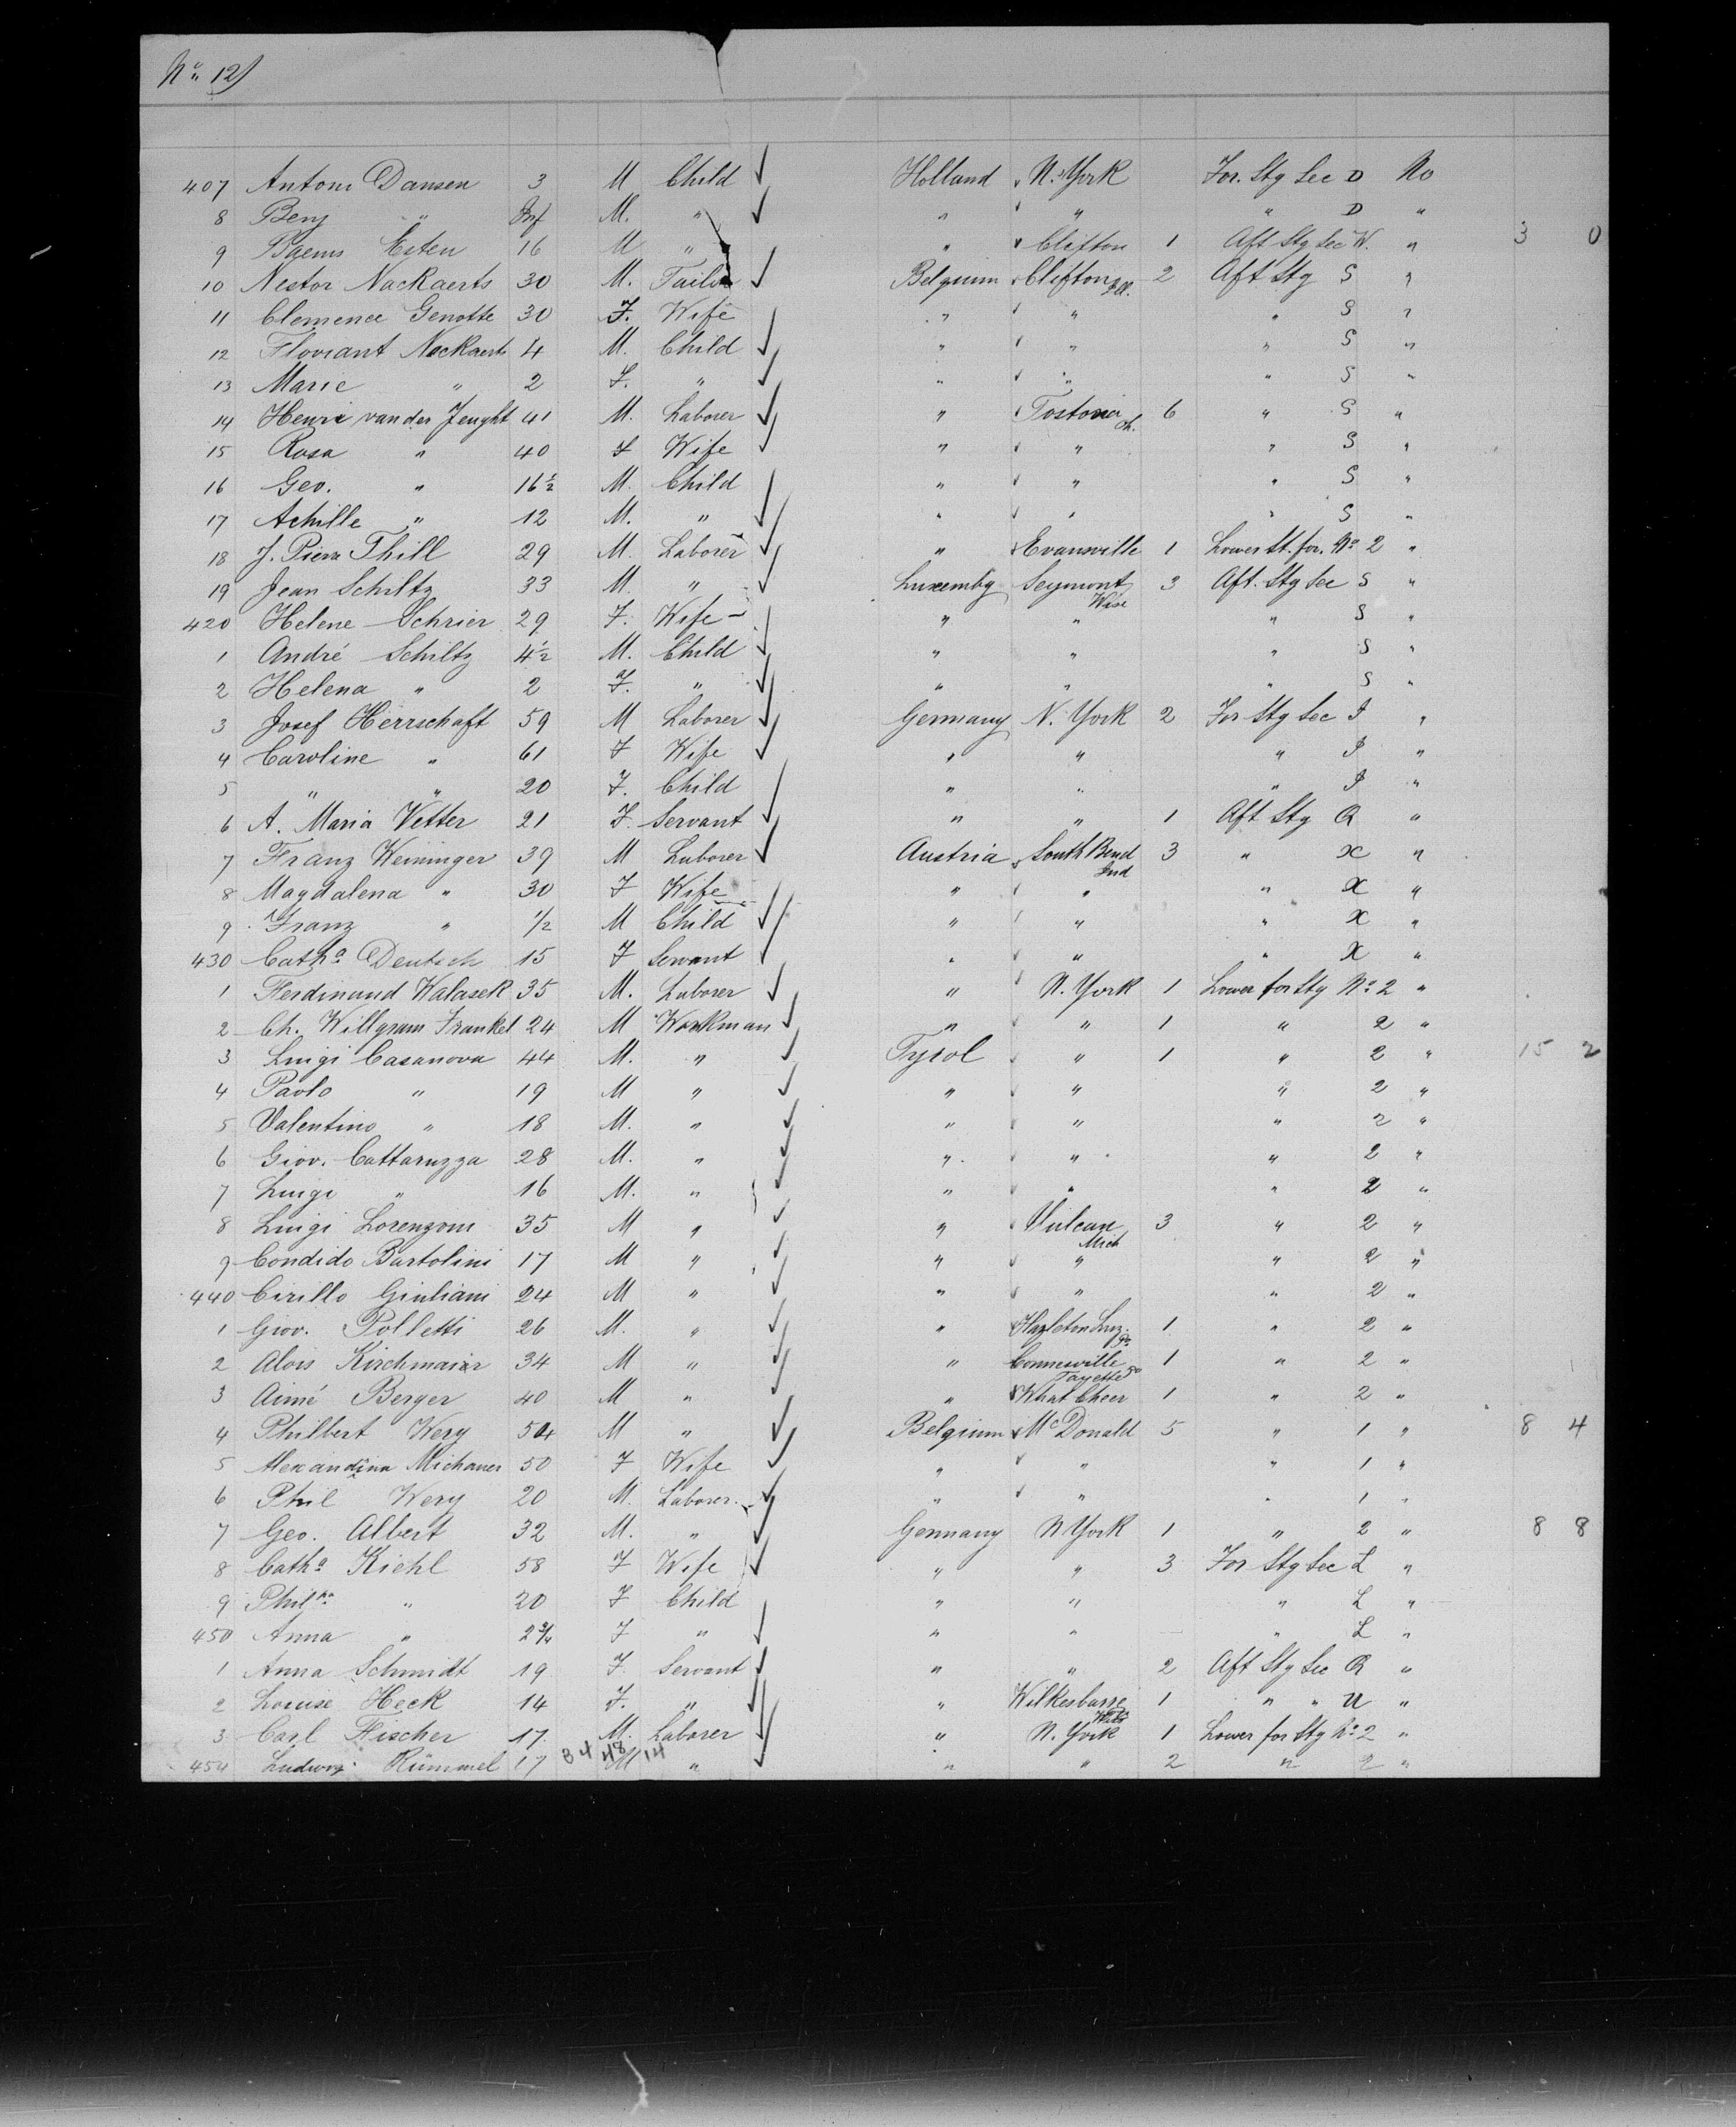 No 12)
407 Antoni Dansen 3 M Child Holland N. York For. Stg Sec D No
8 Benj " Inf M. " " " " D "
9 Esten 16 M " " Clifton 1 Aft Stg Sec W. " 3 0
10 Nestor Nackaerts 30 M. Tailor Belgium Clifton Ill. 2 Aft Stg S "
11 Clemence Genotte 30 F. Wife " " " S "
12 Floriant Nackaerts 4 M. Child " " " S "
13 Marie " 2 F. " " " " S "
14 Henri van der Jeught 41 M. Laborer " Tostoria Oh. 6 " S "
15 Rosa " 40 F Wife " " " S "
16 Geo. " 16½ M. Child " " " S "
17 Achille " 12 M. " " " " S "
18 J. Pierre Thill 29 M. Laborer " Evansville 1 Lower St. for. No 2 "
19 Jean Schiltz 33 M. " Luxemby Seymont Wise 3 Aft. Stg Sec S "
420 Helene Schrier 29 F. Wife " " " S "
1 André Schiltz 4½ M. Child " " " S "
2 Helena " 2 F. " " " " S "
3 Josef Herrschaft 59 M Laborer Germany N. York 2 For Stg Sec I "
4 Caroline " 61 F Wife " " " I "
5 " " 20 F. Child " " " I "
6 A. Maria Vetter 21 F. Servant " " 1 Aft Stg Q "
7 Franz Weininger 39 M Laborer Austria South Bend Ind 3 " X "
8 Magdalena " 30 F Wife " " " X "
9 Franz " ½ M Child " " " X "
430 Catha Deutsch 15 F Servant " " " X "
1 Ferdinand Walasek 35 M. Laborer " N. York 1 Lower for Stg No 2 "
2 Ch. Willgram Frankel 24 M Workman " " 1 " 2 "
3 Luigi Casanova 44 M. " Tyrol " 1 " 2 " 15 2
4 Paolo " 19 M " " " " 2 "
5 Valentino " 18 M. " " " " 2 "
6 Giov. Cattaruzza 28 M. " " " " 2 "
7 Luigi " 16 M. " " " " 2 "
8 Luigi Lorenzoni 35 M " " Vulcan Mich 3 " 2 "
9 Condido Bartolini 17 M " " " " 2 "
440 Cirillo Giuliani 24 M " " " " 2 "
1 Giov. Polletti 26 M. " " Hazleton Luz. Pa 1 " 2 "
2 Alois Kirchmaier 34 M " " Connesville Fayette 1 " 2 "
3 Aimé Berger 40 M " " What Cheer 1 " 2 "
4 Philbert Wery 54 M " Belgium McDonald 5 " 1 " 8 4
5 Alexandina Michaux 50 F Wife " " " 1 "
6 Phil Wery 20 M. Laborer " " " 1 "
7 Geo. Albert 32 M. " Germany N York 1 " 2 " 8 8
8 Catha Kiehl 58 F Wife " " 3 For Stg Sec L "
9 Philne " 20 F Child " " " L "
450 Anna " 2¾ F " " " " L "
1 Anna Schmidt 19 F. Servant " " 2 Aft Stg Sec Q "
2 Louise Heck 14 F. " " Wilkesbarre 1 " " U "
3 Carl Fischer 17 M. Laborer " N. York 1 Lower for Stg No 2 "
454 Ludwig Rümmel 17 34 48 M 14 " " " 2 " 2 "